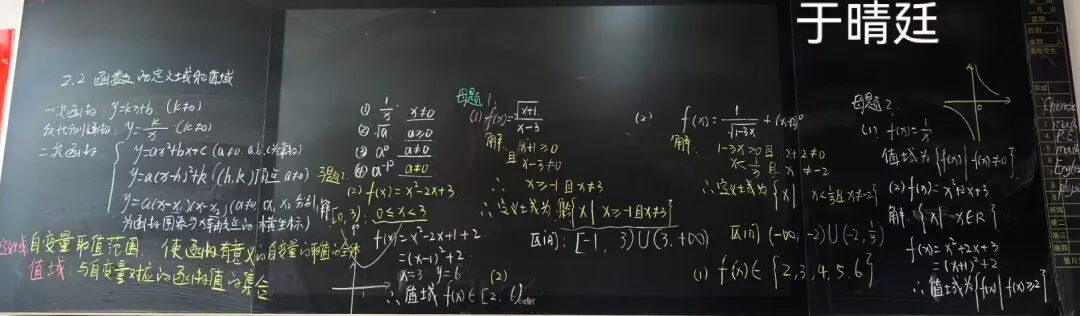 于晴廷
2.2 函数的定义域和值域
一次函数: y=kx+b (k≠0)
反比例函数: y=k/x (k≠0)
二次函数:
y=ax²+bx+c (a≠0, a.b.c为常数)
y=a(x-h)²+k ((h,k)顶点 a≠0)
y=a(x-x₁)(x-x₂) (a≠0
为函数图象与x轴交点的横坐标)
定义域 自变量取值范围 使函数有意义的自变量的取值的全体
值域: 与自变量对应的函数值的集合
① 1/x x≠0
② √a a≥0
③ a⁰ a≠0
④ a⁻ᵖ a≠0
习题2
(2) f(x)=x²-2x+3
解 [0,3) 0≤x<3
f(x)=x²-2x+1+2
=(x-1)²+2
x=3 y=6
∴ 值域 f(x)∈[2,6)
母题1.
(1) f(x)=√(x+1)/(x-3)
解: x+1≥0
且 x-3≠0
∴ x≥-1且x≠3
∴定义域为 {x|x≥-1且x≠3}
区间: [-1, 3)∪(3,+∞)
(2)
(2) f(x)=1/√(1-3x)+(x+2)⁰
解. 1-3x>0 且 x+2≠0
x<1/3 且 x≠-2
∴定义域为 {x| x<1/3且x≠-2}
区间 (-∞,-2)∪(-2,1/3)
(1) f(x)∈{2,3,4,5,6}
母题2.
(1) f(x)=1/x
值域为 {f(x)|f(x)≠0}
(2) f(x)=x²+2x+3
解. {x|x∈R}
f(x)=x²+2x+3
=(x+1)²+2
∴值域为{f(x)|f(x)≥2}
0
Chinese